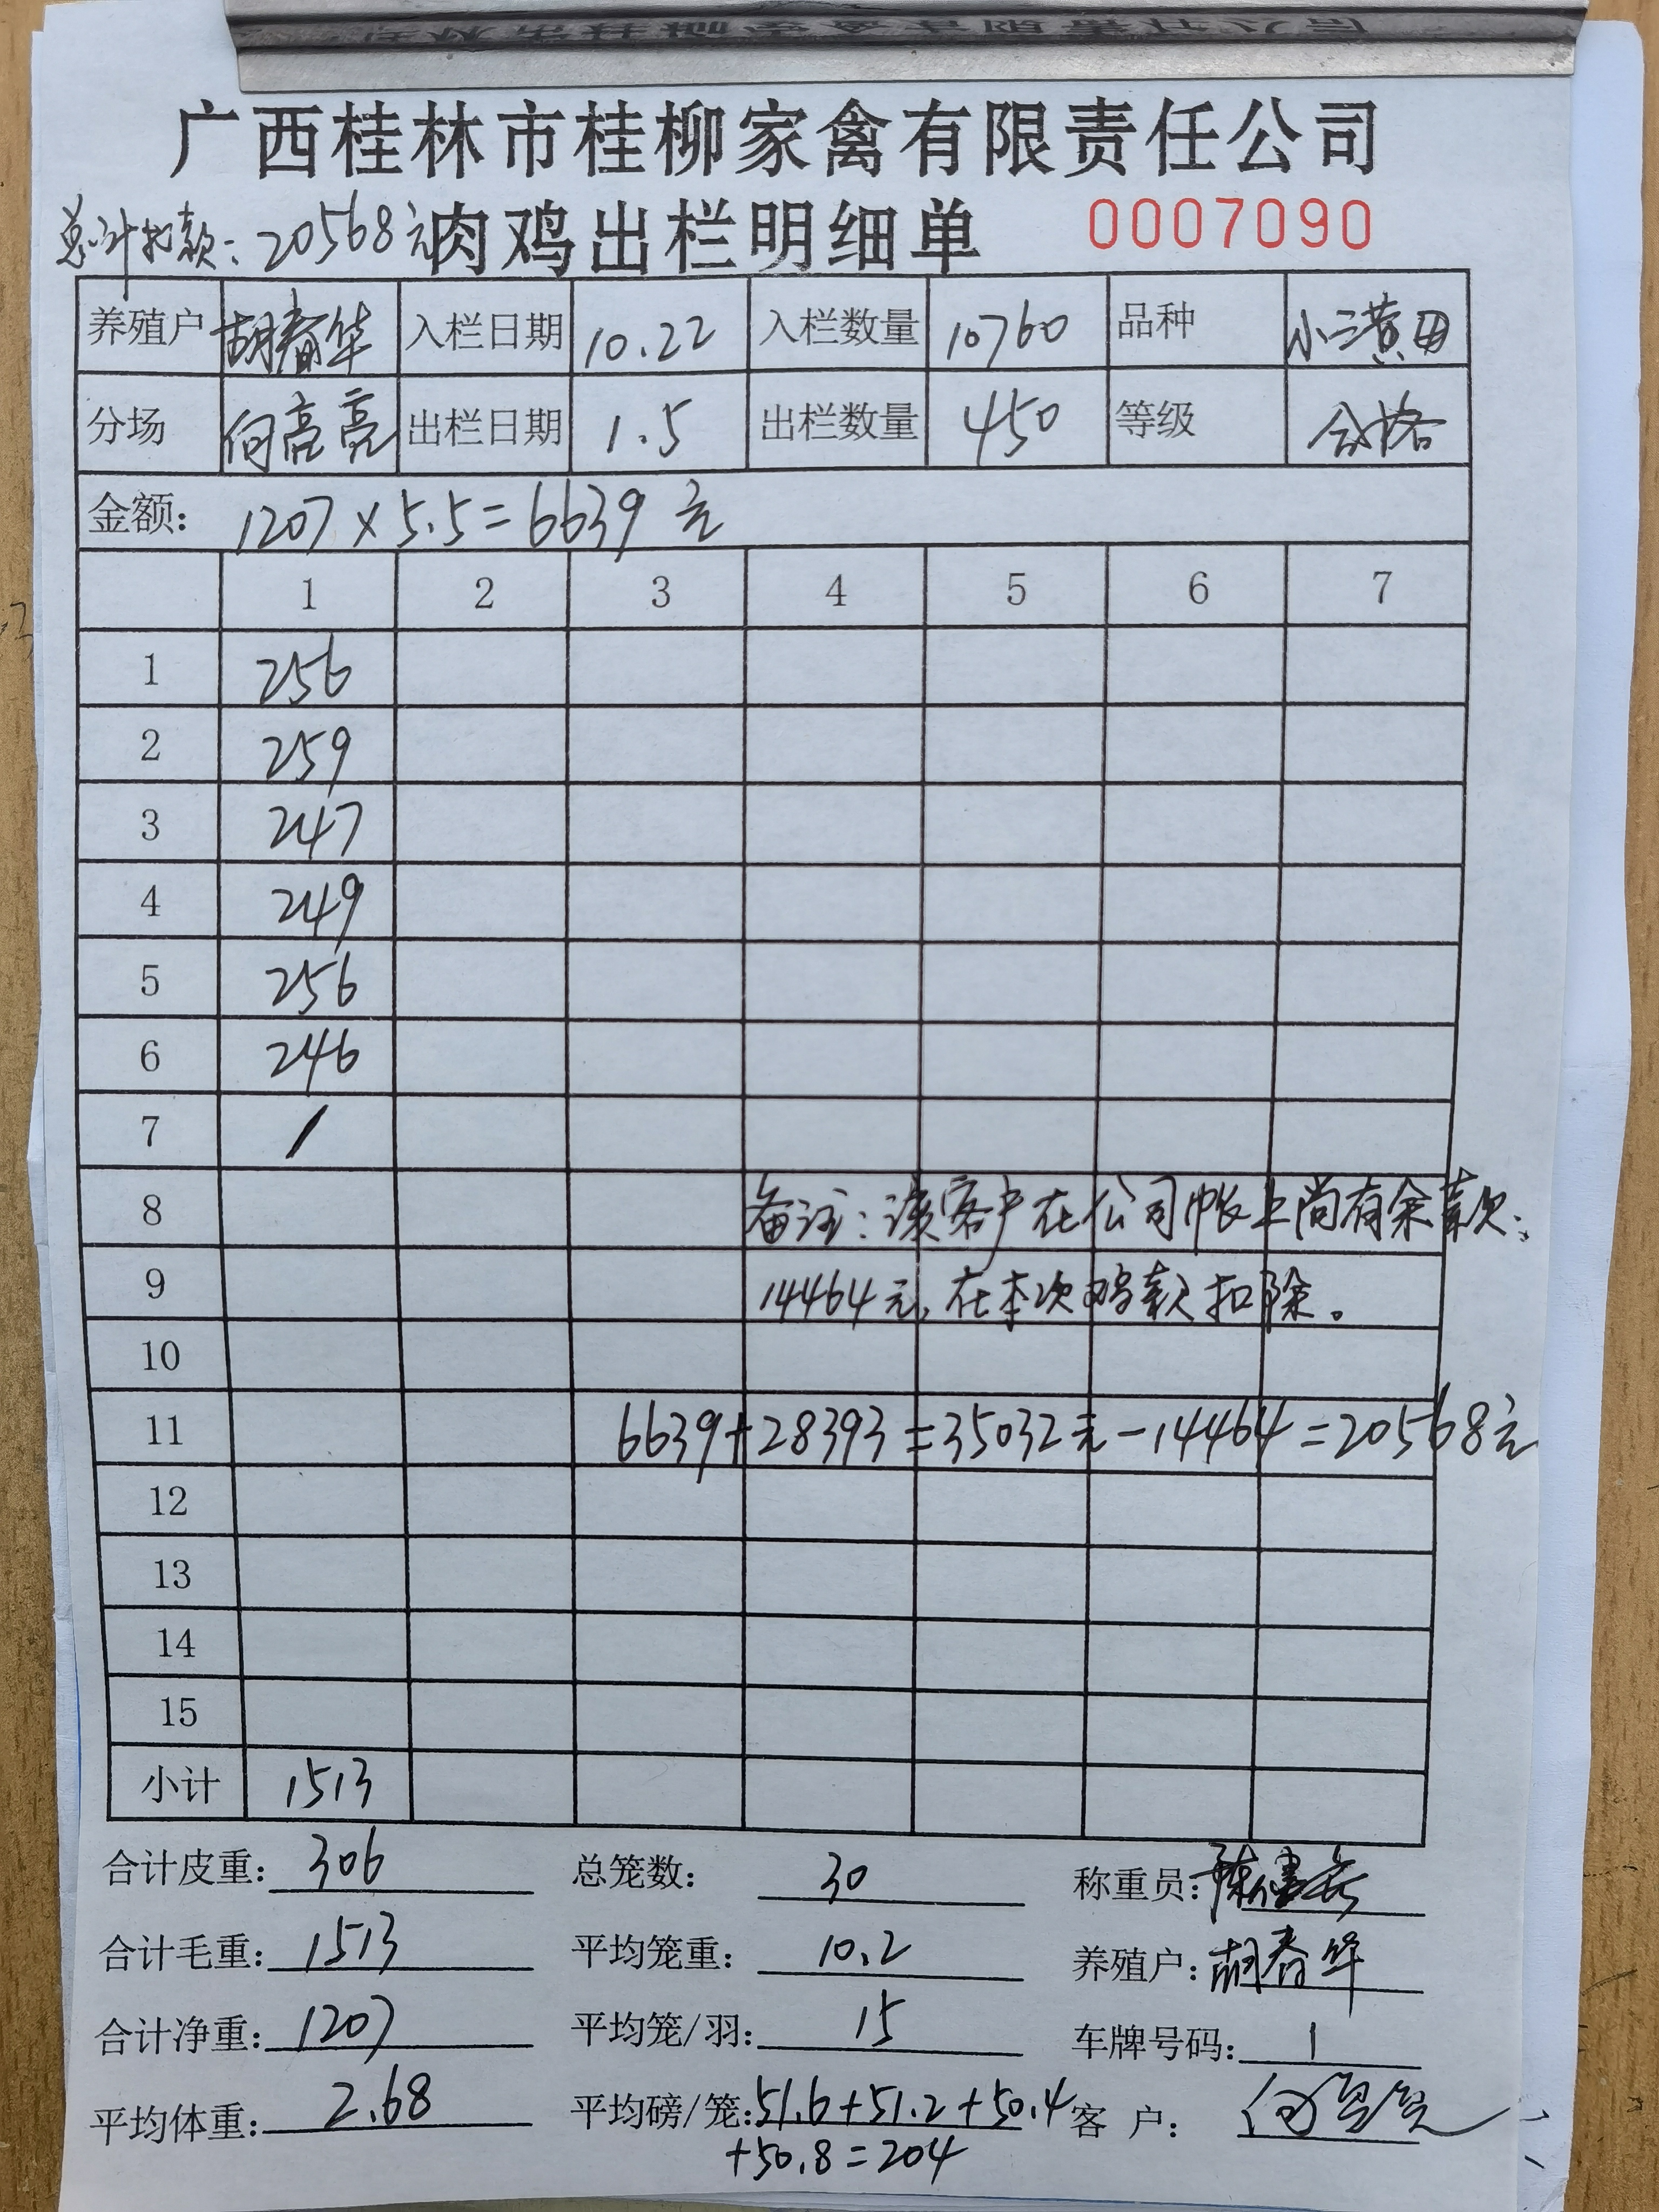 广西桂林市桂柳家禽有限责任公司
总计扣款：20568元 肉鸡出栏明细单 0007090
养殖户 胡春华 入栏日期 10.22 入栏数量 10760 品种 小三黄母
分场 何亮亮 出栏日期 1.5 出栏数量 450 等级 合格
金额： 1207×5.5=6639元
1 2 3 4 5 6 7
1 256
2 259
3 247
4 249
5 256
6 246
7 /
8 备注：该客户在公司帐上尚有余款：
9 14464元，在本次鸡款扣除。
10
11 6639+28393=35032元-14464=20568元
12
13
14
15
小计 1513
合计皮重：306 总笼数：30 称重员：
合计毛重：1513 平均笼重：10.2 养殖户：胡春华
合计净重：1207 平均笼/羽：15 车牌号码：1
平均体重：2.68 平均磅/笼：51.6+51.2+50.4 客户：何亮亮
+50.8=204